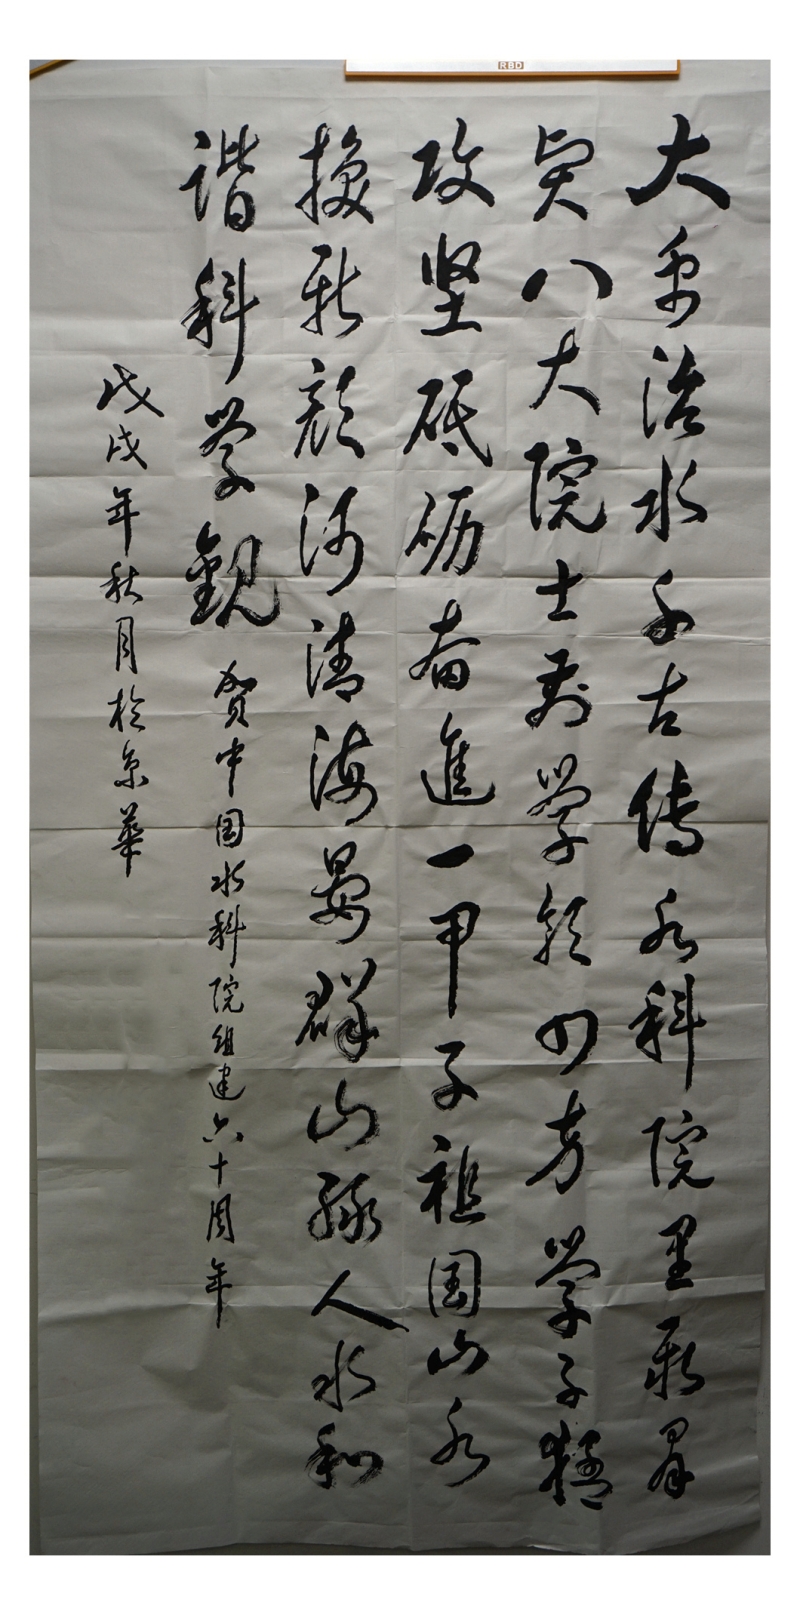 RBD
大禹治水千古傳水科院里聚群
贤八大院士学领四方学子猛
攻坚砥砺奋進一甲子祖国山水
换新颜河清海晏群山绿人水和
谐科学觀 贺中国水科院组建六十周年
戊戌年秋月於京華